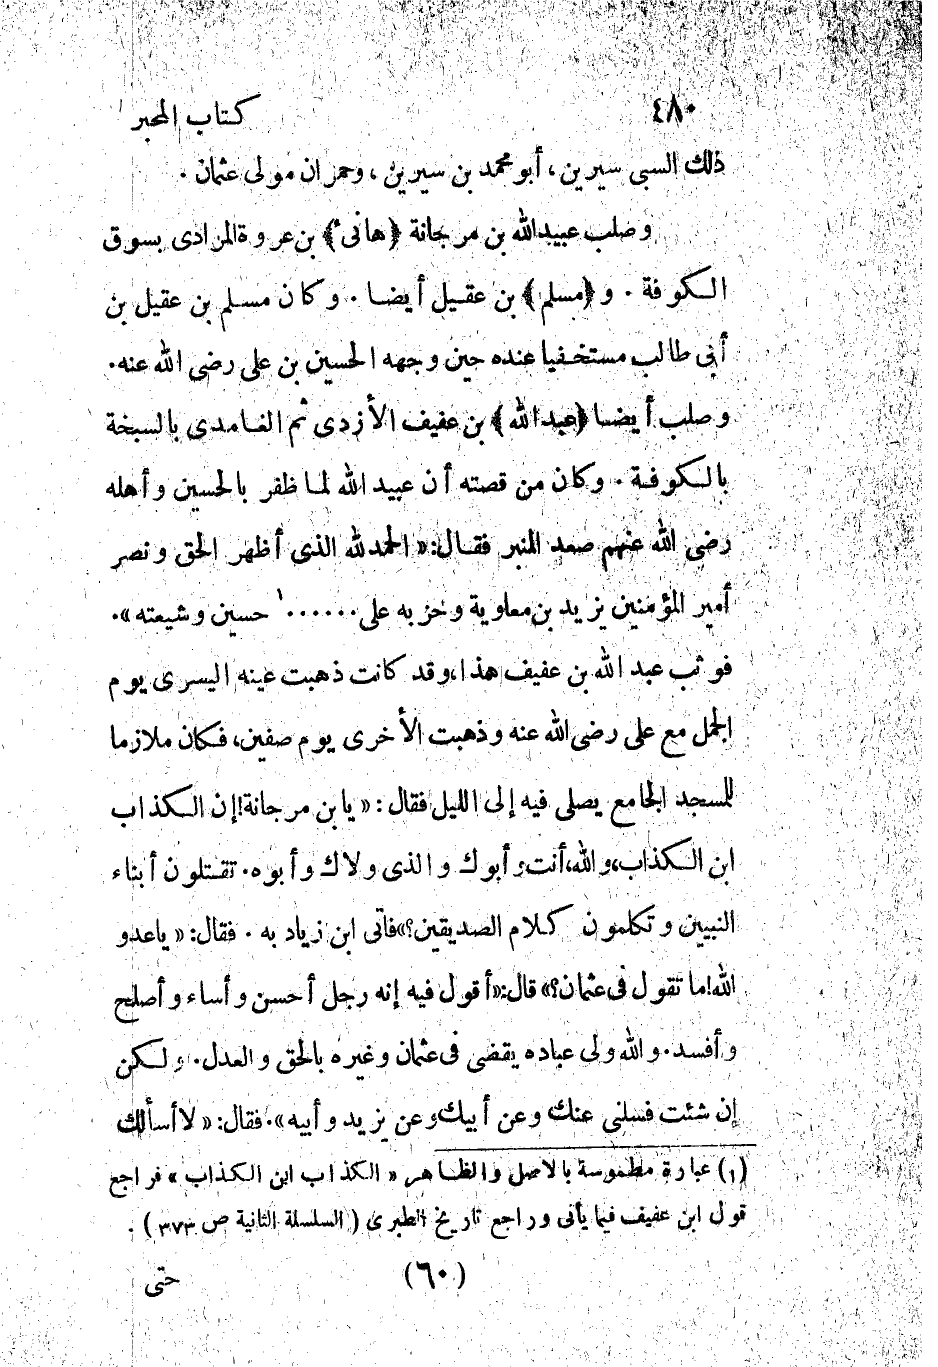 ٤٨٠ كتاب المحبر
ذلك السبى سيرين، أبو محمد بن سيرين، وحمران مولى عثمان.
وصلب عبيدالله بن مرجانة ﴿هانى﴾ بن عروة المرادى بسوق
الكوفة. و﴿مسلم﴾ بن عقيل أيضا. وكان مسلم بن عقيل بن
أبى طالب مستخفيا عنده حين وجهه الحسين بن على رضى الله عنه.
وصلب أيضا ﴿عبد الله﴾ بن عفيف الأزدى ثم الغامدى بالسبخة
بالكوفة. وكان من قصته أن عبيد الله لما ظفر بالحسين وأهله
رضى الله عنهم صعد المنبر فقال: «الحمد لله الذى أظهر الحق ونصر
أمير المؤمنين يزيد بن معاوية وحزبه على ......١ حسين وشيعته».
فوثب عبد الله بن عفيف هذا، وقد كانت ذهبت عينه اليسرى يوم
الجمل مع على رضى الله عنه وذهبت الأخرى يوم صفين، فكان ملازما
للمسجد الجامع يصلى فيه إلى الليل فقال: «يا بن مرجانة! إن الكذاب
ابن الكذاب، والله، أنت وأبوك والذى ولاك وأبوه. تقتلون أبناء
النبيين وتكلمون كلام الصديقين؟» فأتى ابن زياد به. فقال: «يا عدو
الله! ما تقول فى عثمان؟» قال: «أقول فيه إنه رجل أحسن وأساء وأصلح
وأفسد. والله ولى عباده يقضى فى عثمان وغيره بالحق والعدل. ولكن
إن شئت فسلنى عنك وعن أبيك وعن يزيد وأبيه». فقال: «لا أسألك
(١) عبارة مطموسة بالاصل والظاهر «الكذاب ابن الكذاب» فراجع
قول ابن عفيف فيما يأتى وراجع تاريخ الطبرى (السلسلة الثانية ص ٣٧٣).
(٦٠) حتى